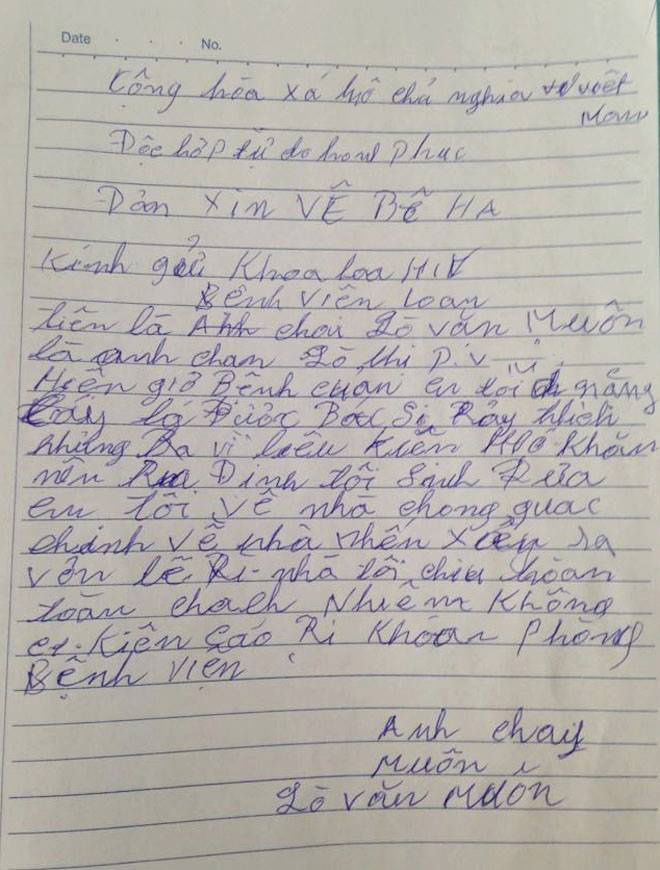 Date . . . No.
Cộng hòa xá hô chả nghia việt
Mam
Dôc hâp tử do hanh phuc
Dản xin VỄ BỄ HA
Kinh gửi Khoa loa HIV
Bênh viên loan
tiên là Anh chai Lò văn Muôn
là anh chan Lò thi P.V
Hiên giờ Bênh cuan en tôi năng
lá Được Bac Si Rảy thich
nhưng Ba vì liêu Kiên Hoc Khăn
nên Rua Dinh tôi Sinh Rưa
en tôi VÊ nhà chong guac
chinh VÊ nhà nhên xảy ra
Vân lê Ri nhà tôi chiu hoan
toàn chach Nhiêm Không
Kiên Cáo Ri Khoan Phòng
Bệnh Viên
Anh chay
Muôn
Lò văn Muôn